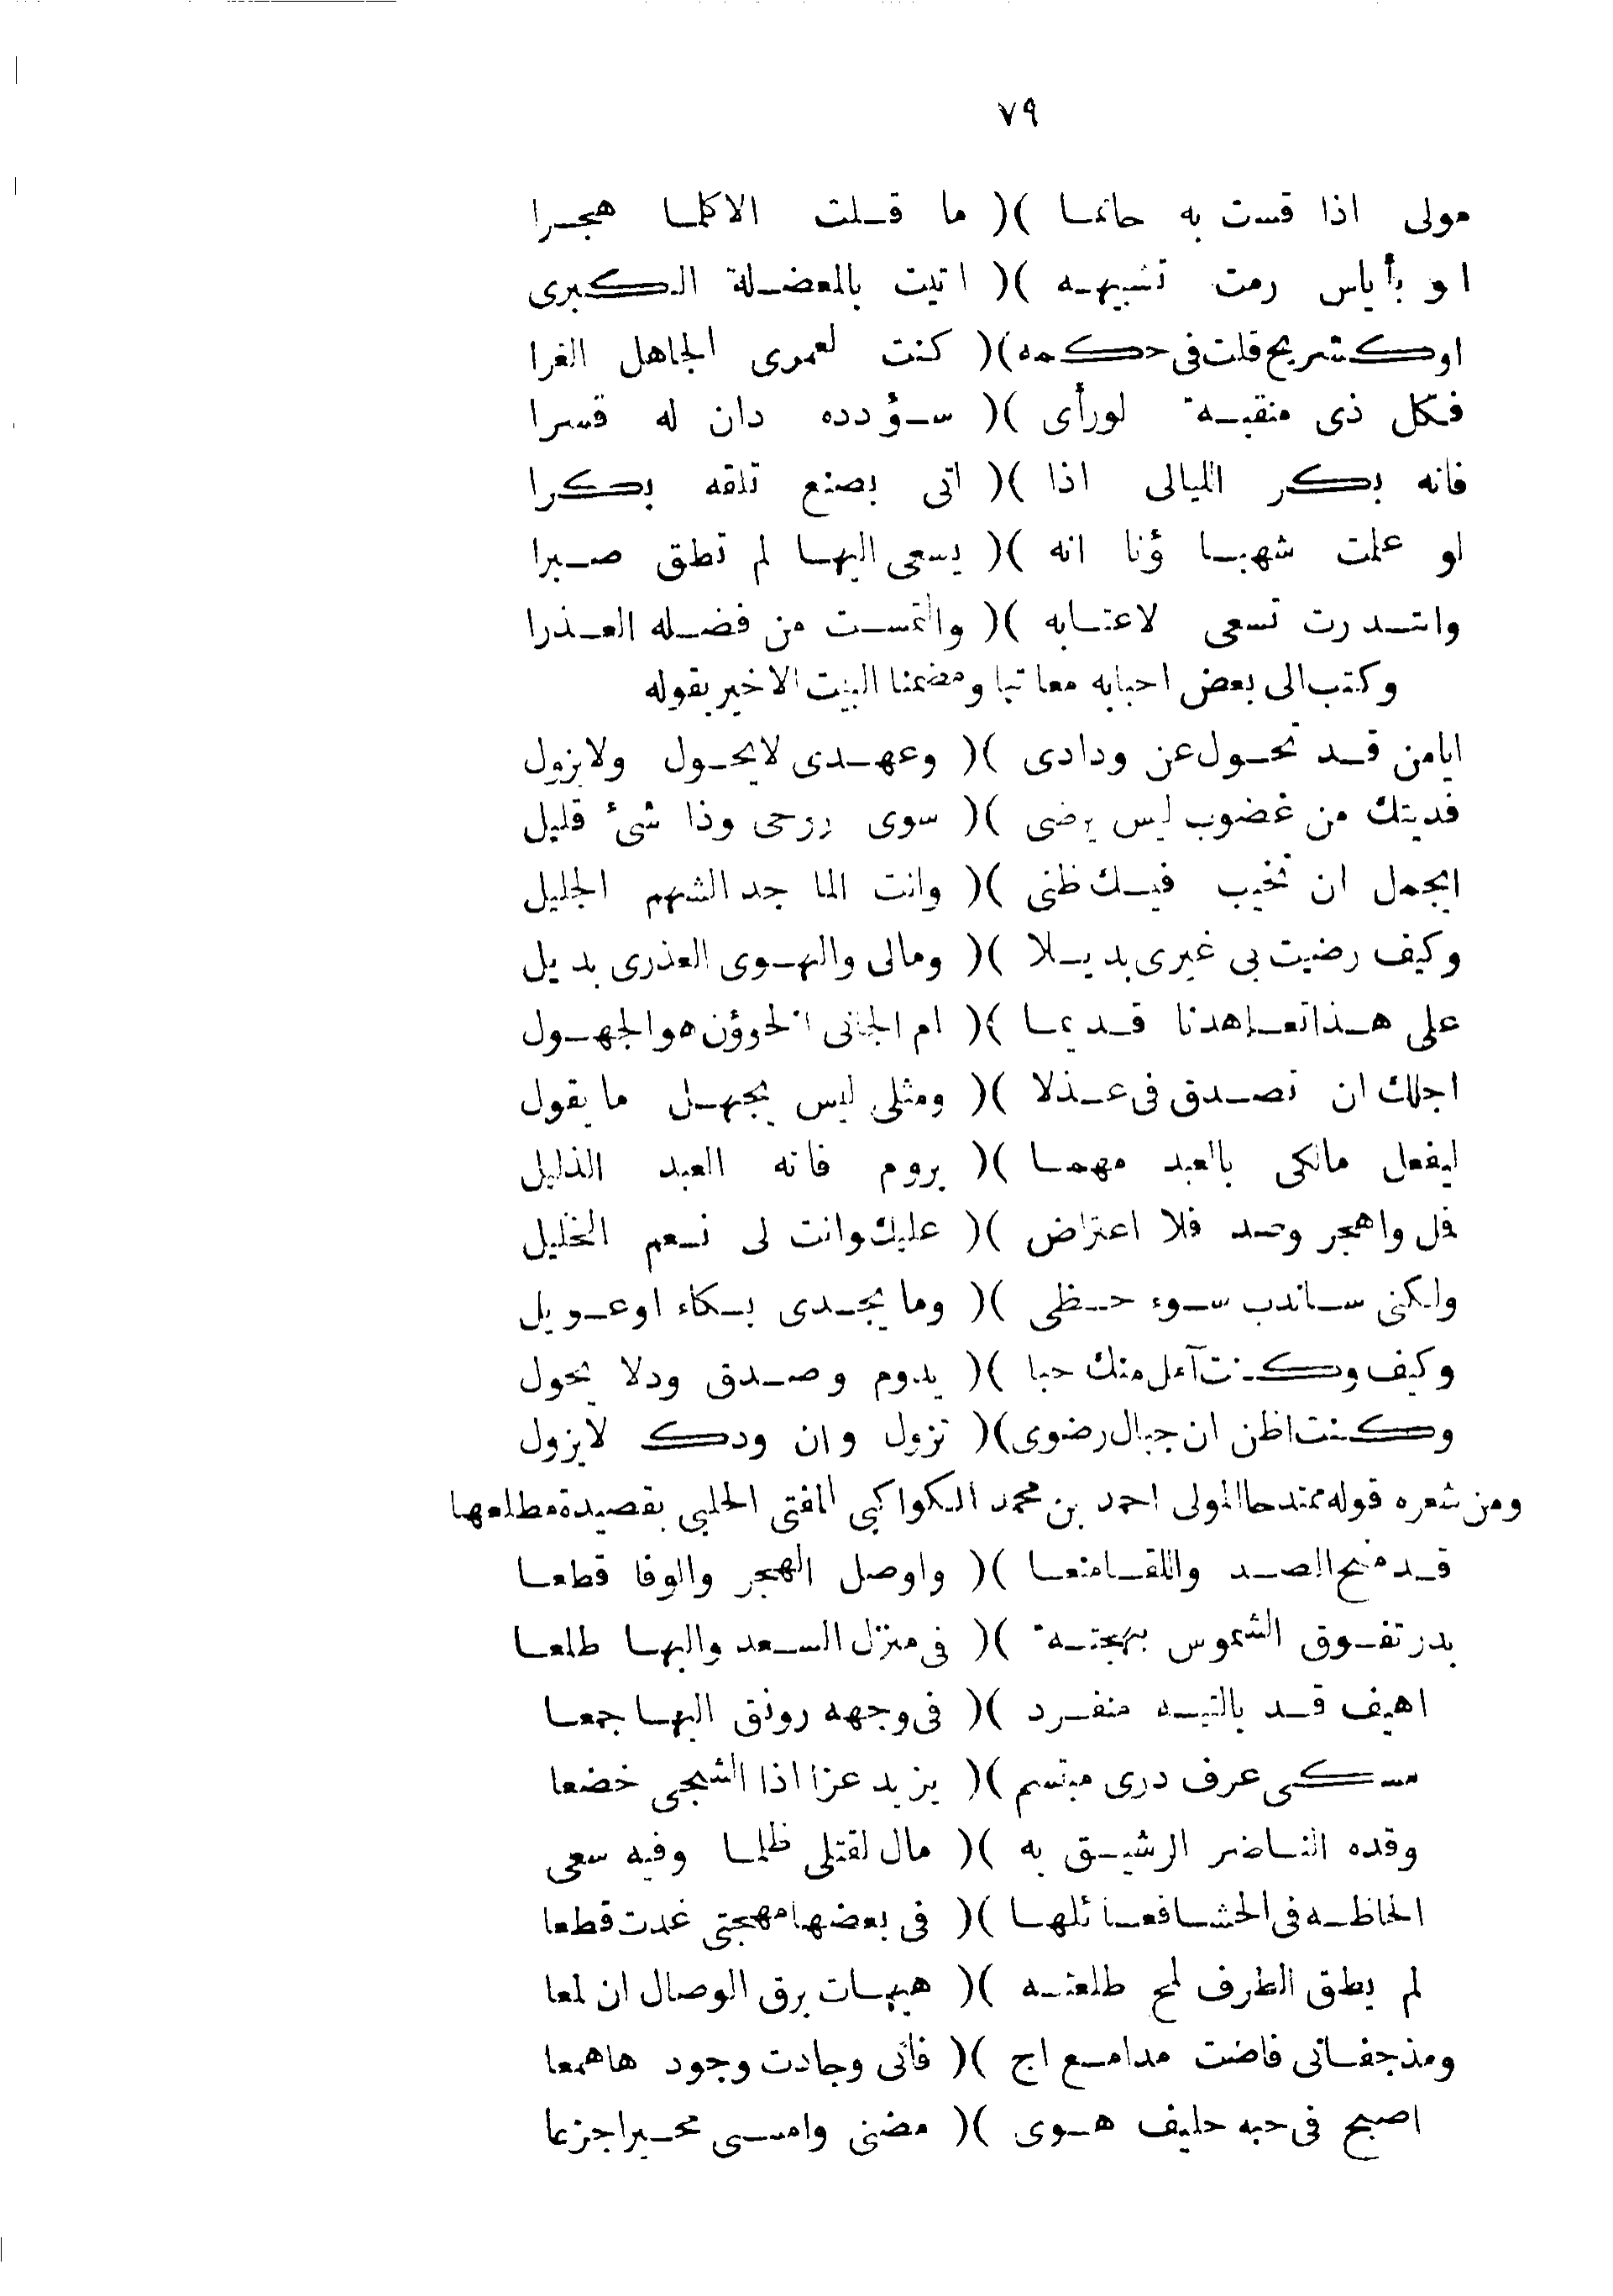 ٧٩
مولى اذا قست به حاتما )( ما قلت الاكلما هجرا
او بأياس رمت تشبيهه )( اتيت بالمعضلة الكبرى
اوكشريح قلت فى حكمه )( كنت لعمرى الجاهل الغرا
فكل ذى منقبة لورأى )( سؤدده دان له قسرا
فانه بكر الليالى اذا )( اتى بصنع تلقه بكرا
لو علمت شهباؤنا انه )( يسعى اليها لم تطق صبرا
وابتدرت تسعى لاعتابه )( والتمست من فضله العذرا
وكتب الى بعض احبابه معاتبا ومضمنا البيت الاخير بقوله
ايامن قد تحول عن ودادى )( وعهدى لايحول ولايزول
فديتك من غضوب ليس يرضى )( سوى روحى وذا شئ قليل
ايجمل ان تخيب فيك ظنى )( وانت الماجد الشهم الجليل
وكيف رضيت بى غيرى بديلا )( ومالى والهوى العذرى بديل
على هذا تعاهدنا قديما )( ام الجانى الخوؤن هو الجهول
اجلك ان تصدق فى عذلا )( ومثلى ليس يجهل ما يقول
ليفعل مالكى بالعبد مهما )( يروم فانه العبد الذليل
فل واهجر وصد فلا اعتراض )( عليك وانت لى نعم الخليل
ولكنى ساندب سوء حظى )( وما يجدى بكاء اوعويل
وكيف وكنت آمل منك حبا )( يدوم وصدق ودلا يحول
وكنت اظن ان جبال رضوى )( تزول وان ودك لايزول
ومن شعره قوله ممتدحا المولى احمد بن محمد الكواكبى المفتى الحلبى بقصيدة مطلعها
قد منح الصد واللقا منعا )( واوصل الهجر والوفا قطعا
بدر تفوق الشموس بهجته )( فى منزل السعد والبها طلعا
اهيف قد بالتيه منفرد )( فى وجهه رونق البها جمعا
مسكى عرف درى مبتسم )( يزيد عزا اذا الشجى خضعا
وقده الناضر الرشيق به )( مال لقتلى ظلما وفيه سعى
الحاظه فى الحشا فعائلها )( فى بعضها مهجتى غدت قطعا
لم يطق الطرف لمح طلعته )( هيهات برق الوصال ان لمعا
ومذجفانى فاضت مدامع اج )( فانى وجادت وجود هاهمعا
اصبح فى حبه حليف هوى )( مضنى وامسى محيرا جزعا